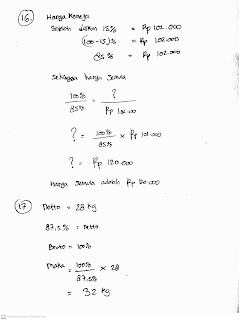 16. Harga Kemeja
Setelah diskon 15% = Rp 102.000
(100-15)% = Rp 102.000
85% = Rp 102.000
Sehingga harga semula
100% / 85% = ? / Rp 102.000
? = 100% / 85% × Rp 102.000
? = Rp 120.000
Harga semula adalah Rp 120.000
17 Netto = 28 kg
87,5% = Netto
Bruto = 100%
Maka = 100% / 87,5% × 28
= 32 kg